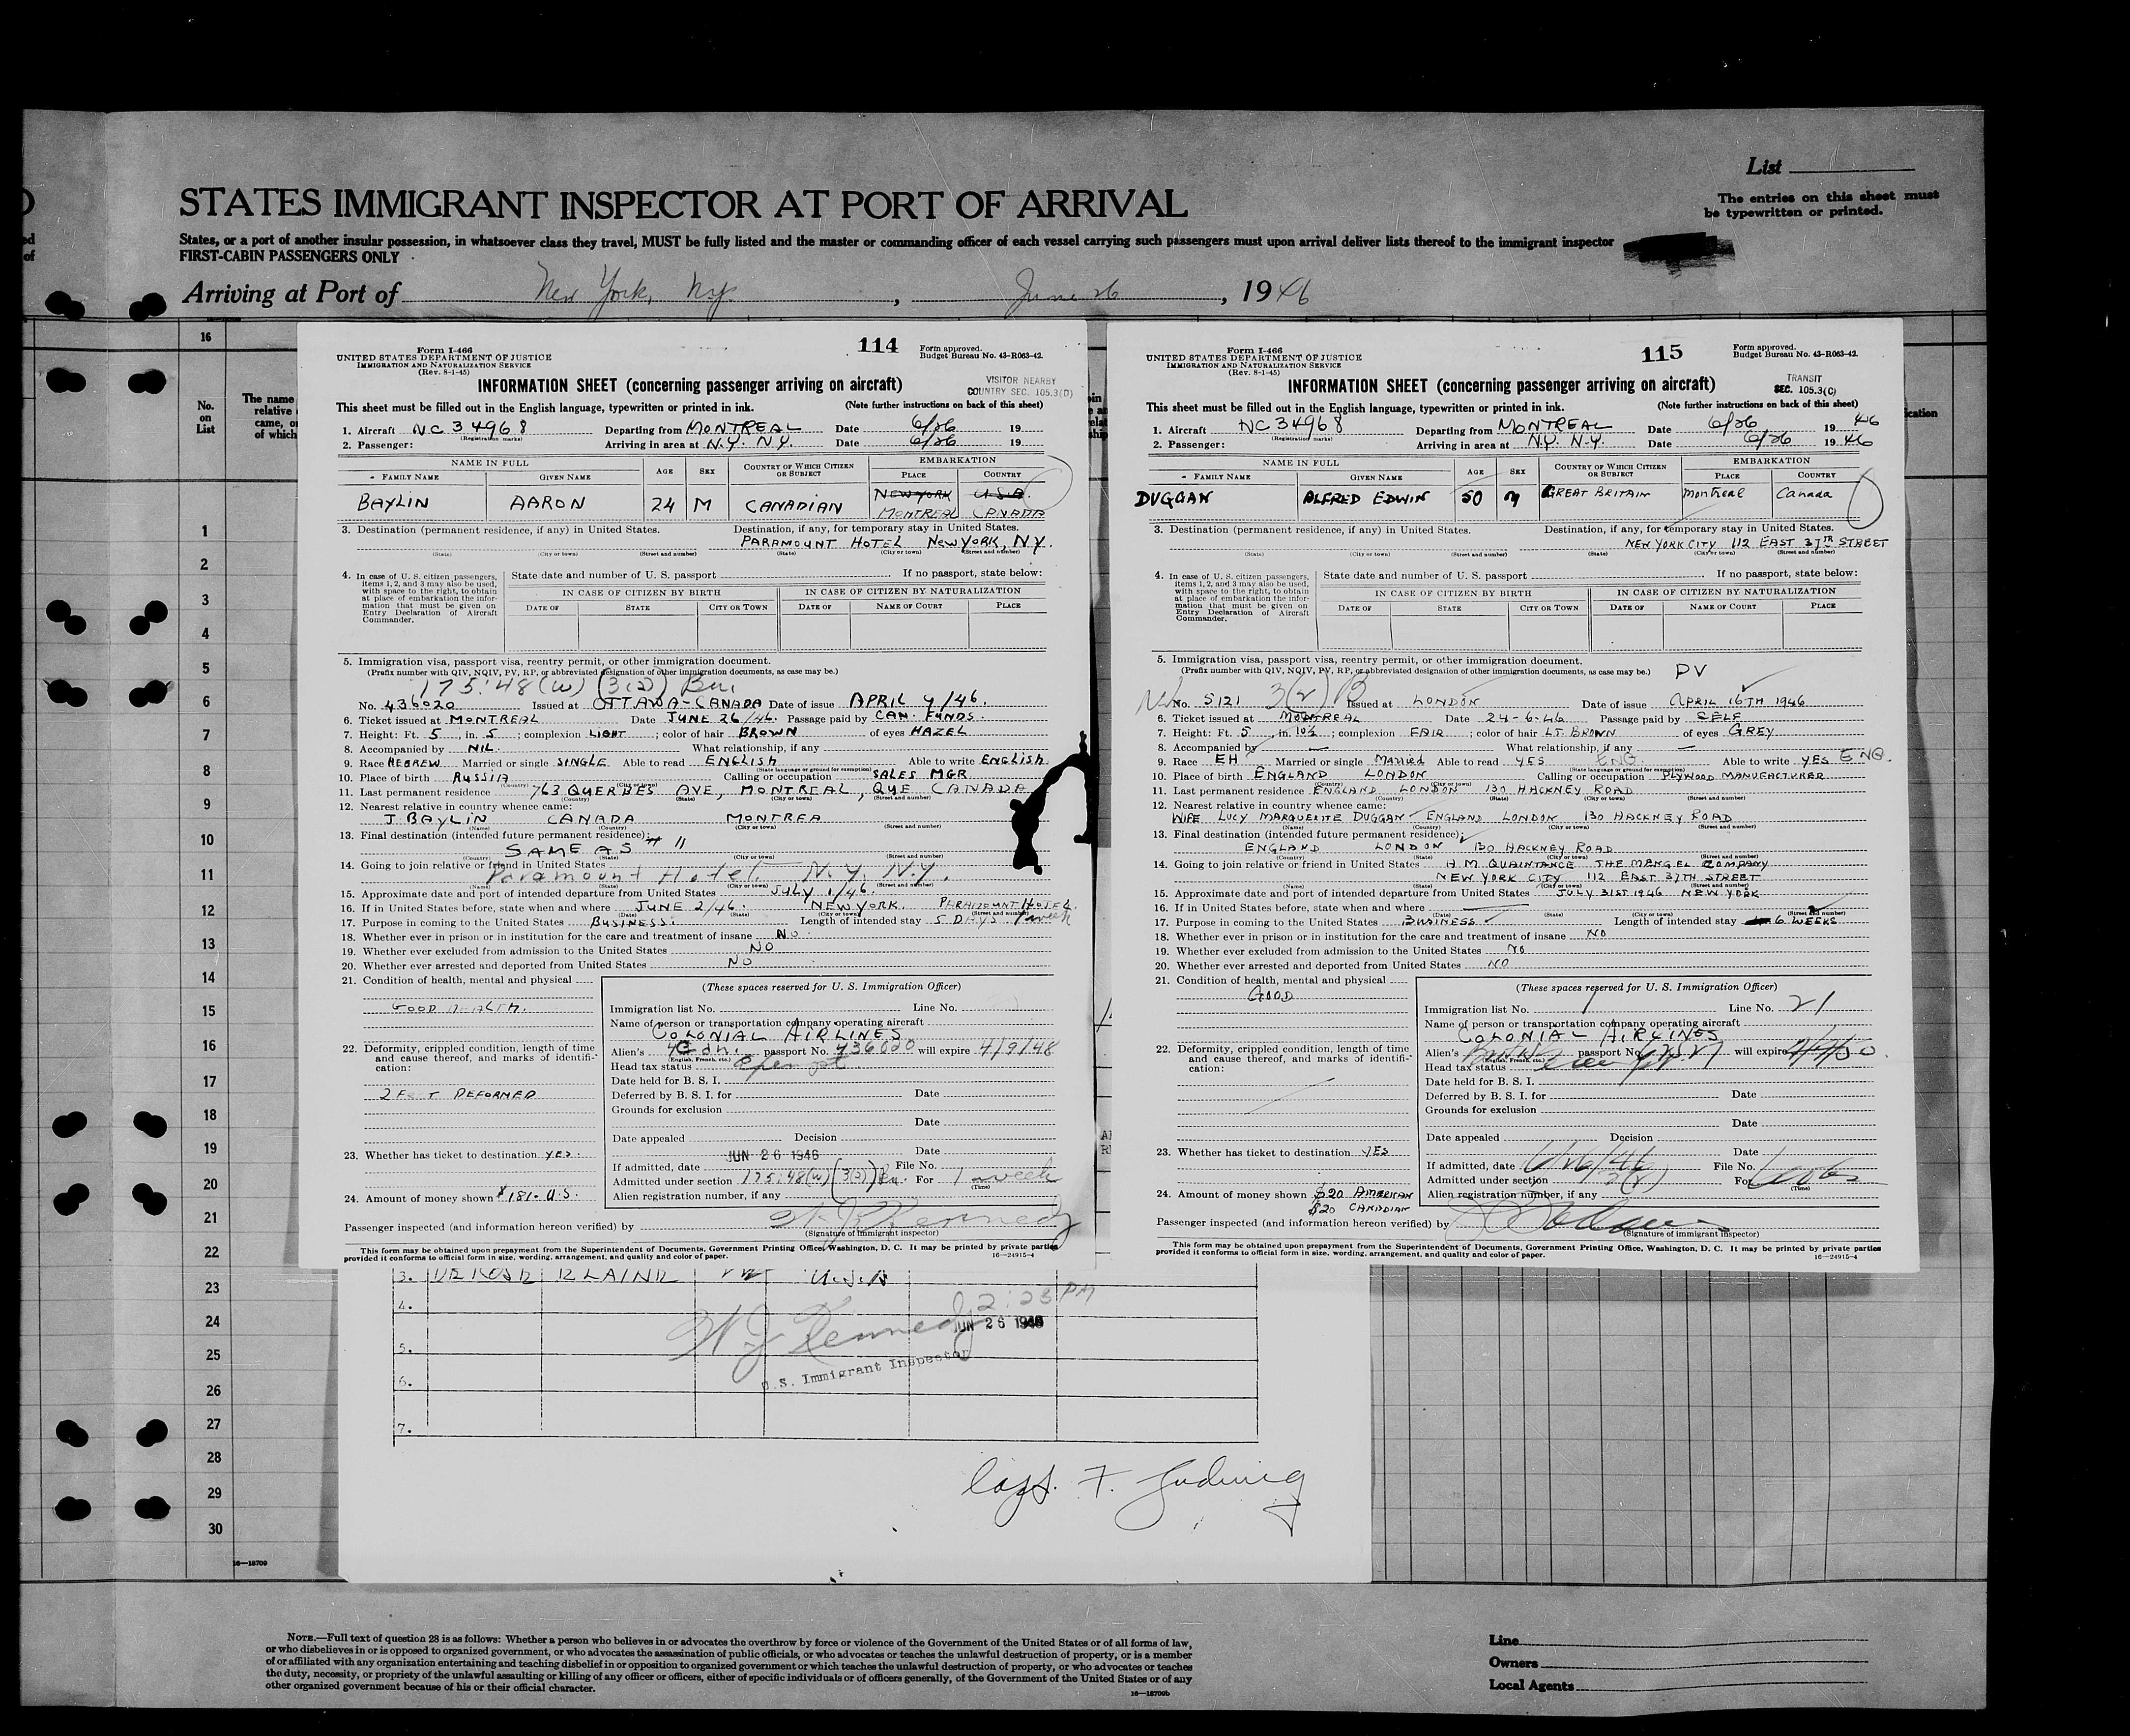 List
The entries on this sheet must
be typewritten or printed.
STATES IMMIGRANT INSPECTOR AT PORT OF ARRIVAL
States, or a port of another insular possession, in whatsoever class they travel, MUST be fully listed and the master or commanding officer of each vessel carrying such passengers must upon arrival deliver lists thereof to the immigrant inspector
FIRST-CABIN PASSENGERS ONLY
Arriving at Port of New York, N.Y. , June 26 , 1946
16
No. on List
The name
relative
came, o
of which
1
2
3
4
5
6
7
8
9
10
11
12
13
14
15
16
17
18
19
20
21
22
23
24
25
26
27
28
29
30
16—18709
Form I-466
UNITED STATES DEPARTMENT OF JUSTICE
IMMIGRATION AND NATURALIZATION SERVICE
(Rev. 8-1-45)
114
Form approved.
Budget Bureau No. 43-R063-42.
INFORMATION SHEET (concerning passenger arriving on aircraft)
VISITOR NEARBY
COUNTRY SEC. 105.3(D)
This sheet must be filled out in the English language, typewritten or printed in ink. (Note further instructions on back of this sheet)
1. Aircraft NC34968 Departing from MONTREAL Date 6/26 19
(Registration marks)
2. Passenger: Arriving in area at N.Y. N.Y. Date 6/26 19
NAME IN FULL AGE SEX COUNTRY OF WHICH CITIZEN OR SUBJECT EMBARKATION
FAMILY NAME GIVEN NAME PLACE COUNTRY
NEW YORK U.S.A.
BAYLIN AARON 24 M CANADIAN MONTREAL CANADA
3. Destination (permanent residence, if any) in United States. Destination, if any, for temporary stay in United States.
PARAMOUNT HOTEL NEW YORK, N.Y.
(State) (City or town) (Street and number) (State) (City or town) (Street and number)
4. In case of U. S. citizen passengers, items 1, 2, and 3 may also be used, with space to the right, to obtain at place of embarkation the information that must be given on Entry Declaration of Aircraft Commander.
State date and number of U. S. passport If no passport, state below:
IN CASE OF CITIZEN BY BIRTH IN CASE OF CITIZEN BY NATURALIZATION
DATE OF STATE CITY OR TOWN DATE OF NAME OF COURT PLACE
5. Immigration visa, passport visa, reentry permit, or other immigration document.
(Prefix number with QIV, NQIV, PV, RP, or abbreviated designation of other immigration documents, as case may be.)
175.48(w) (3(2))
No. 436020 Issued at OTTAWA-CANADA Date of issue APRIL 9/46.
6. Ticket issued at MONTREAL Date JUNE 26/46. Passage paid by CAN. FUNDS.
7. Height: Ft. 5, in. 5; complexion LIGHT; color of hair BROWN of eyes HAZEL
8. Accompanied by NIL. What relationship, if any
9. Race HEBREW Married or single SINGLE Able to read ENGLISH Able to write ENGLISH
(State language or ground for exemption)
10. Place of birth RUSSIA Calling or occupation SALES MGR
(Country) (City or town)
11. Last permanent residence 763 QUERBES AVE, MONTREAL, QUE CANADA
(Country) (State) (City or town) (Street and number)
12. Nearest relative in country whence came:
J BAYLIN CANADA MONTREA
(Name) (Country) (City or town) (Street and number)
13. Final destination (intended future permanent residence):
SAME AS # 11
(Country) (State) (City or town) (Street and number)
14. Going to join relative or friend in United States
Paramount Hotel N.Y. N.Y.
(Name) (State) (City or town) (Street and number)
15. Approximate date and port of intended departure from United States JULY 1/46
16. If in United States before, state when and where JUNE 2/46. NEW YORK. PARAMOUNT HOTEL
(Date) (State) (City or town) (Street and number)
17. Purpose in coming to the United States BUSINESS. Length of intended stay 5 DAYS. 1 week
18. Whether ever in prison or in institution for the care and treatment of insane NO
19. Whether ever excluded from admission to the United States NO
20. Whether ever arrested and deported from United States NO
21. Condition of health, mental and physical
GOOD HEALTH.
22. Deformity, crippled condition, length of time and cause thereof, and marks of identification:
2 DEFORMED
23. Whether has ticket to destination YES.
24. Amount of money shown $181. U.S.
(These spaces reserved for U. S. Immigration Officer)
Immigration list No. Line No.
Name of person or transportation company operating aircraft
COLONIAL AIRLINES
Alien's passport No. 436020 will expire 4/9/48
(English, French, etc.)
Head tax status Exempt
Date held for B. S. I.
Deferred by B. S. I. for Date
Grounds for exclusion
Date
Date appealed Decision
JUN 26 1946 Date
If admitted, date File No.
Admitted under section 175.48(w) (3(2)) For 1 week
(Time)
Alien registration number, if any
Passenger inspected (and information hereon verified) by W J Kennedy
(Signature of immigrant inspector)
This form may be obtained upon prepayment from the Superintendent of Documents, Government Printing Office, Washington, D. C. It may be printed by private parties
provided it conforms to official form in size, wording, arrangement, and quality and color of paper. 16—24915-4
Form I-466
UNITED STATES DEPARTMENT OF JUSTICE
IMMIGRATION AND NATURALIZATION SERVICE
(Rev. 8-1-45)
115
Form approved.
Budget Bureau No. 43-R063-42.
INFORMATION SHEET (concerning passenger arriving on aircraft)
TRANSIT
SEC. 105.3(C)
This sheet must be filled out in the English language, typewritten or printed in ink. (Note further instructions on back of this sheet)
1. Aircraft NC34968 Departing from MONTREAL Date 6/26 1946
(Registration marks)
2. Passenger: Arriving in area at N.Y. N.Y. Date 6/26 1946
NAME IN FULL AGE SEX COUNTRY OF WHICH CITIZEN OR SUBJECT EMBARKATION
FAMILY NAME GIVEN NAME PLACE COUNTRY
DUGGAN ALFRED EDWIN 50 M GREAT BRITAIN Montreal Canada
3. Destination (permanent residence, if any) in United States. Destination, if any, for temporary stay in United States.
NEW YORK CITY 112 EAST 37TH STREET
(State) (City or town) (Street and number) (State) (City or town) (Street and number)
4. In case of U. S. citizen passengers, items 1, 2, and 3 may also be used, with space to the right, to obtain at place of embarkation the information that must be given on Entry Declaration of Aircraft Commander.
State date and number of U. S. passport If no passport, state below:
IN CASE OF CITIZEN BY BIRTH IN CASE OF CITIZEN BY NATURALIZATION
DATE OF STATE CITY OR TOWN DATE OF NAME OF COURT PLACE
5. Immigration visa, passport visa, reentry permit, or other immigration document.
(Prefix number with QIV, NQIV, PV, RP, or abbreviated designation of other immigration documents, as case may be.) PV
No. 5121 3(2) B Issued at LONDON Date of issue APRIL 16TH 1946
6. Ticket issued at MONTREAL Date 24-6-46 Passage paid by SELF
7. Height: Ft. 5, in. 10½; complexion FAIR; color of hair LT. BROWN of eyes GREY
8. Accompanied by — What relationship, if any —
9. Race EH Married or single Married Able to read YES ENG. Able to write YES ENG.
(State language or ground for exemption)
10. Place of birth ENGLAND LONDON Calling or occupation PLYWOOD MANUFACTURER
(Country) (City or town)
11. Last permanent residence ENGLAND LONDON 130 HACKNEY ROAD
(Country) (State) (City or town) (Street and number)
12. Nearest relative in country whence came:
WIFE LUCY MARGUERITE DUGGAN ENGLAND LONDON 130 HACKNEY ROAD
(Name) (Country) (City or town) (Street and number)
13. Final destination (intended future permanent residence):
ENGLAND LONDON 130 HACKNEY ROAD
(Country) (State) (City or town) (Street and number)
14. Going to join relative or friend in United States H M QUAINTANCE THE MENGEL COMPANY
NEW YORK CITY 112 EAST 37TH STREET
(Name) (State) (City or town) (Street and number)
15. Approximate date and port of intended departure from United States JULY 31ST 1946 NEW YORK
16. If in United States before, state when and where
(Date) (State) (City or town) (Street and number)
17. Purpose in coming to the United States BUSINESS Length of intended stay 6 WEEKS
18. Whether ever in prison or in institution for the care and treatment of insane NO
19. Whether ever excluded from admission to the United States NO
20. Whether ever arrested and deported from United States NO
21. Condition of health, mental and physical
GOOD
22. Deformity, crippled condition, length of time and cause thereof, and marks of identification:
23. Whether has ticket to destination YES
24. Amount of money shown $20 AMERICAN
$20 CANADIAN
(These spaces reserved for U. S. Immigration Officer)
Immigration list No. 1 Line No. 21
Name of person or transportation company operating aircraft
COLONIAL AIRLINES
Alien's British passport No. will expire
(English, French, etc.)
Head tax status
Date held for B. S. I.
Deferred by B. S. I. for Date
Grounds for exclusion
Date
Date appealed Decision
Date
If admitted, date 6/26/46 File No.
Admitted under section 3(2) For
(Time)
Alien registration number, if any
Passenger inspected (and information hereon verified) by
(Signature of immigrant inspector)
This form may be obtained upon prepayment from the Superintendent of Documents, Government Printing Office, Washington, D. C. It may be printed by private parties
provided it conforms to official form in size, wording, arrangement, and quality and color of paper. 16—24915-4
3. U.S.A
4.
5.
6.
7.
2:23 PM
JUN 26 1946
W J Kennedy
U.S. Immigrant Inspector
Capt. F. Ludwig
NOTE.—Full text of question 28 is as follows: Whether a person who believes in or advocates the overthrow by force or violence of the Government of the United States or of all forms of law,
or who disbelieves in or is opposed to organized government, or who advocates the assassination of public officials, or who advocates or teaches the unlawful destruction of property, or is a member
of or affiliated with any organization entertaining and teaching disbelief in or opposition to organized government or which teaches the unlawful destruction of property, or who advocates or teaches
the duty, necessity, or propriety of the unlawful assaulting or killing of any officer or officers, either of specific individuals or of officers generally, of the Government of the United States or of any
other organized government because of his or their official character.
16—18709b
Line
Owners
Local Agents